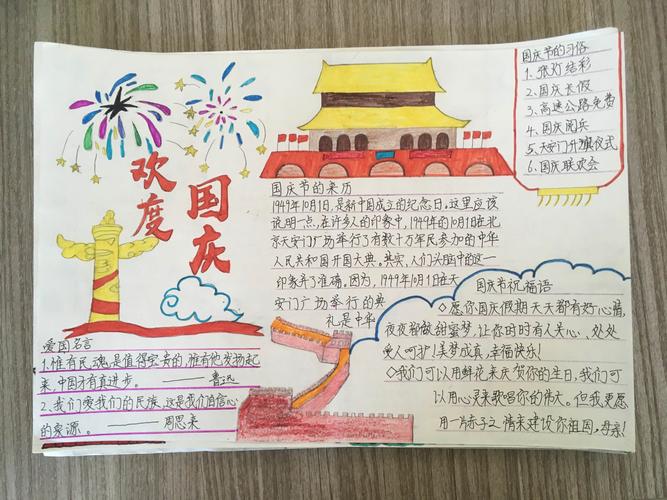 欢度
国庆
国庆节的来历
1949年10月1日,是新中国成立的纪念日。这里应该
说明一点,在许多人的印象中,1949年的10月1日在北
京天安门广场举行了有数十万军民参加的中华
人民共和国开国大典。其实,人们头脑中的这一
印象并不准确。因为,1949年10月1日在天
安门广场举行的典
礼是中华
国庆节的习俗
1、张灯结彩
2、国庆长假
3、高速公路免费
4、国庆阅兵
5、天安门升旗仪式
6、国庆联欢会
爱国名言
1、惟有民魂是值得宝贵的,惟有他发扬起
来,中国才有真进步。——鲁迅
2、我们爱我们的民族,这是我们自信心
的泉源。——周恩来
国庆节祝福语
◇愿你国庆假期天天都有好心情,
夜夜都做甜蜜梦,让你时时有人关心、处处
受人呵护!美梦成真,幸福快乐!
◇我们可以用鲜花来庆贺你的生日,我们可
以用心灵来歌唱你的伟大。但我更愿
用一片赤子之情来建设你祖国,母亲!